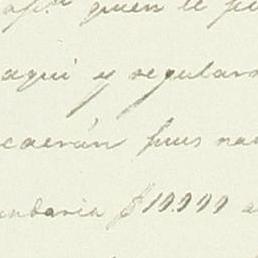 quien le p
aquí y regular
caerán pues na
undaria $10.000 a